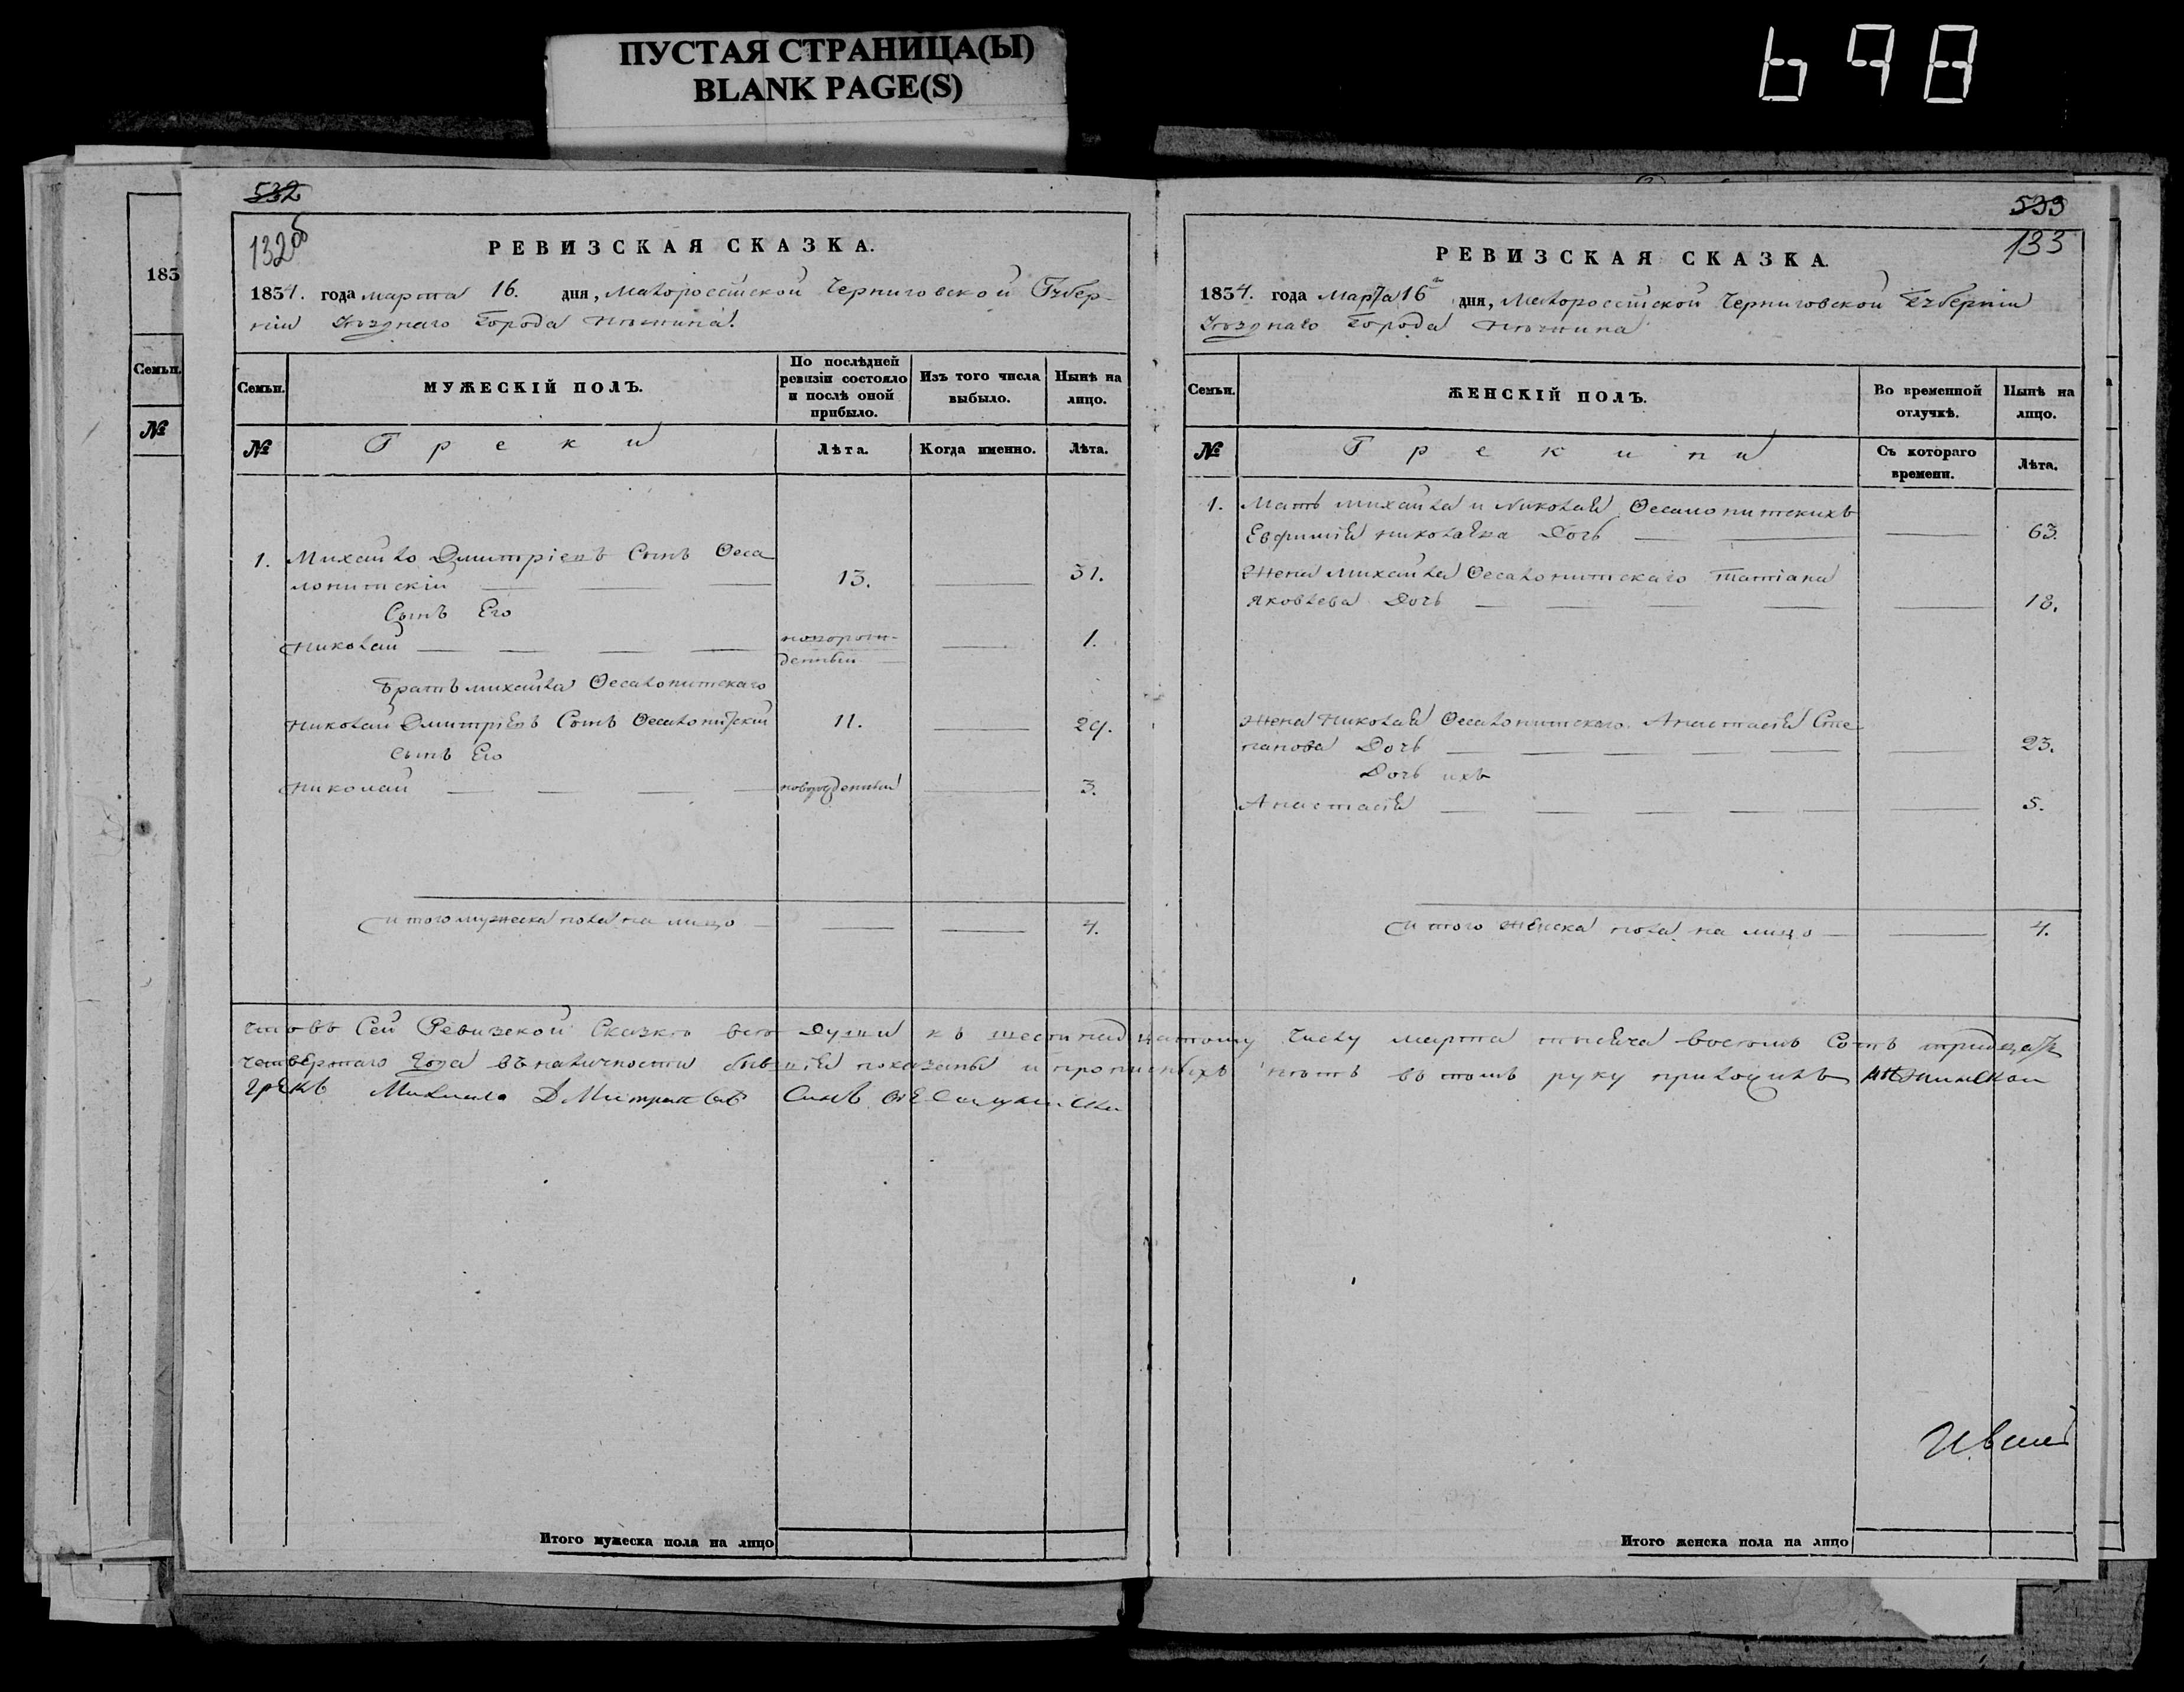 ПУСТАЯ СТРАНИЦА(Ы)
BLANK PAGE(S)
698
183
Семьи.
№
532
132об
РЕВИЗСКАЯ СКАЗКА.
1834. года марта 16. дня, Малороссійской Черниговской Губер-
ніи Уѣзднаго Города Нѣжина.
Семьи.
МУЖЕСКІЙ ПОЛЪ.
По послѣдней ревизіи состояло и послѣ оной прибыло.
Изъ того числа выбыло.
Нынѣ на лицо.
№
Греки
Лѣта.
Когда именно.
Лѣта.
1. Михайло Дмитріевъ Сынъ Ѳеса
лонитскій 13. 31.
Сынъ Его
Николай новорож-
денный 1.
Братъ михайла Ѳесалонитскаго
Николай Дмитріевъ Сынъ Ѳесалонитскій 11. 29.
сынъ Его
Николай новорожденный 3.
Итого мужеска пола на лицо 4.
533
133
РЕВИЗСКАЯ СКАЗКА.
1834. года Марта 16го дня, Малороссійской Черниговской Губерніи
Уѣзднаго Города Нѣжина
Семьи.
ЖЕНСКІЙ ПОЛЪ.
Во временной отлучкѣ.
Нынѣ на лицо.
№
Грекини
Съ котораго времени.
Лѣта.
1. Мать михайла и Николая Ѳесалонитскихъ
Евфимія николаева Дочь 63.
Жена михайла Ѳесалонитскаго Татіана
яковлева Дочь 18.
Жена Николая Ѳесалонитскаго Анастасія Сте
панова Дочь 23.
Дочь ихъ
Анастасія 5.
Итого женска пола на лицо 4.
Что въ Сей Ревизской Сказкѣ всѣ души къ шестнадцатому числу марта тысяча восемь Сотъ тридцать
четвертаго Года въ наличности бывшія показаны и прописныхъ нѣтъ въ томъ руку приложилъ нѣжинскои
грекъ Михаило Дмитриевъ Синъ
Итого мужеска пола на лицо
Итого женска пола на лицо